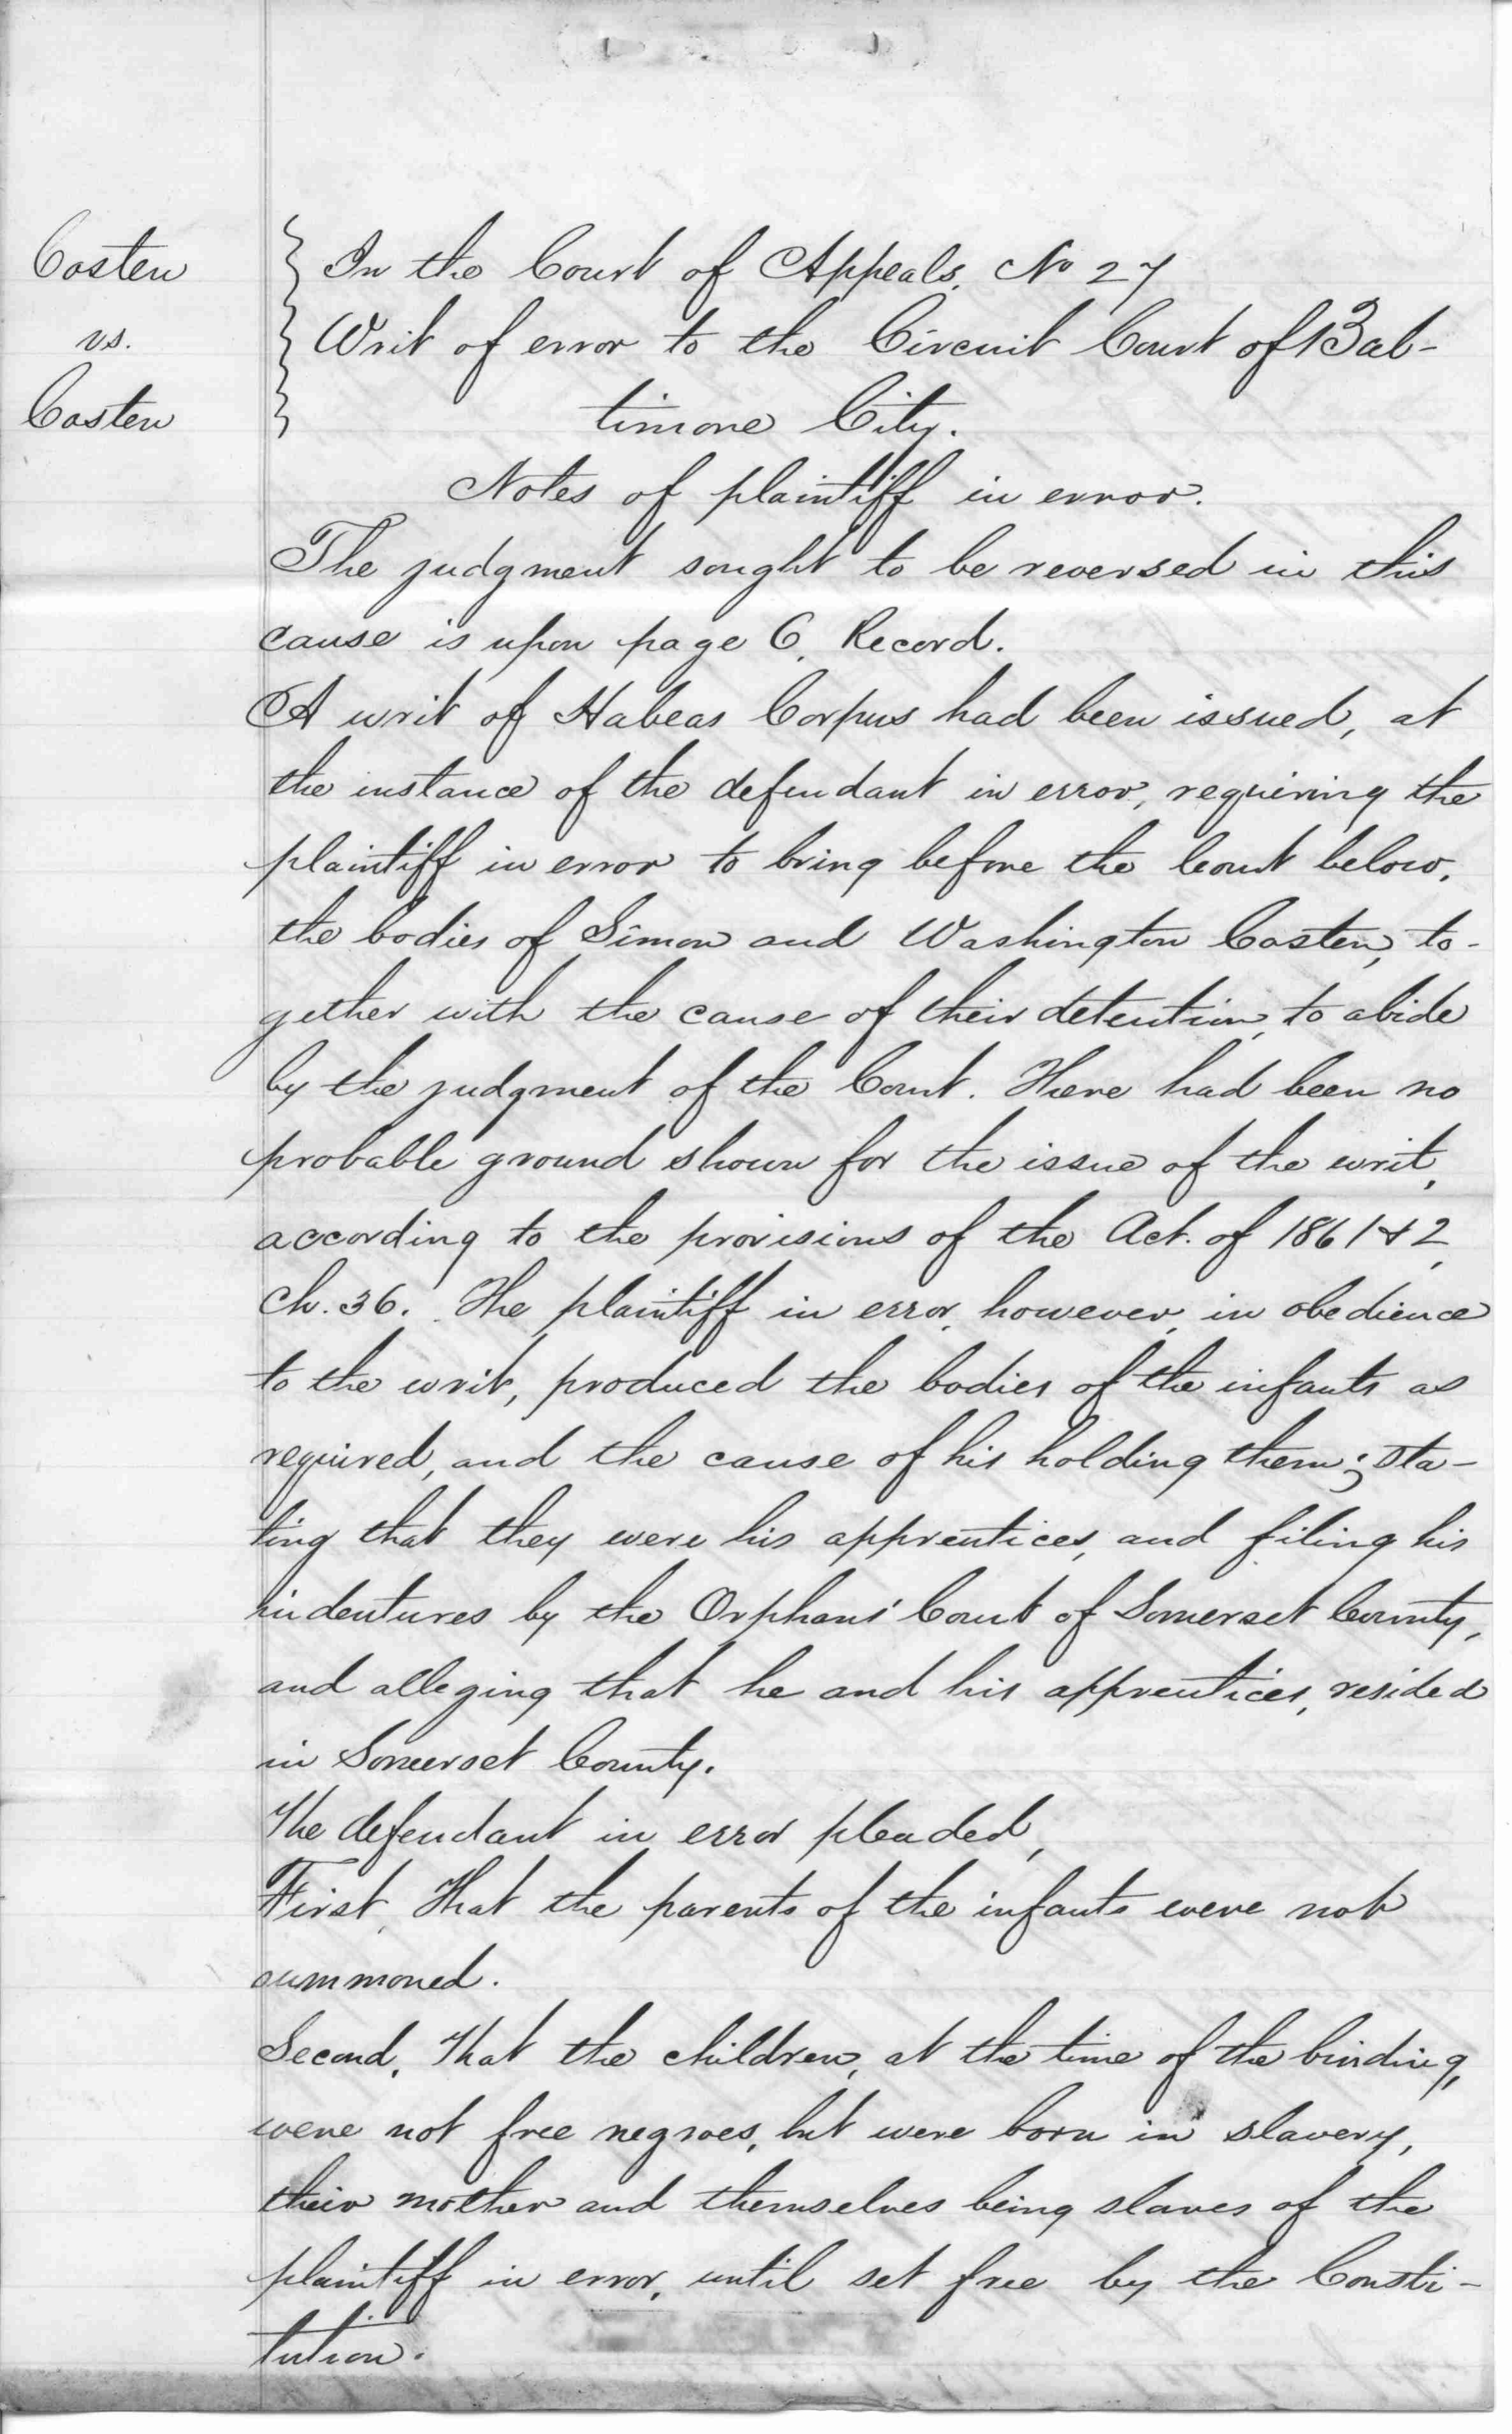 Costen
vs.
Costen
In the Court of Appeals, No 27
Writ of error to the Circuit Court of Bal-
timore City.
Notes of plaintiff in error.
The judgment sought to be reversed in this
cause is upon page 6, Record.
A writ of Habeas Corpus had been issued, at
the instance of the defendant in error, requiring the
plaintiff in error to bring before the Court below,
the bodies of Simon and Washington Costen, to-
gether with the cause of their detention, to abide
by the judgment of the Court. There had been no
probable ground shown for the issue of the writ,
according to the provisions of the Act. of 1861 & 2,
Ch. 36. The plaintiff in error, however, in obedience
to the writ, produced the bodies of the infants as
required, and the cause of his holding them; sta-
ting that they were his apprentices, and filing his
indentures by the Orphans' Court of Somerset County,
and alleging that he and his apprentices, resided
in Somerset County.
The defendant in error pleaded,
First, That the parents of the infants were not
summoned.
Second, That the children, at the time of the binding,
were not free negroes, but were born in slavery,
their mother and themselves being slaves of the
plaintiff in error, until set free by the Consti-
tution.